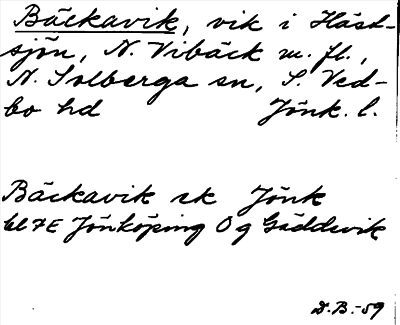 Bäckavik, vik i Häst-
sjön, N. Vibäck m. fl.,
N. Solberga sn, S. Ved-
bo hd Jönk. l.
Bäckavik sk Jönk
bl 7E Jönköping Og Gäddevik
D.B.-59